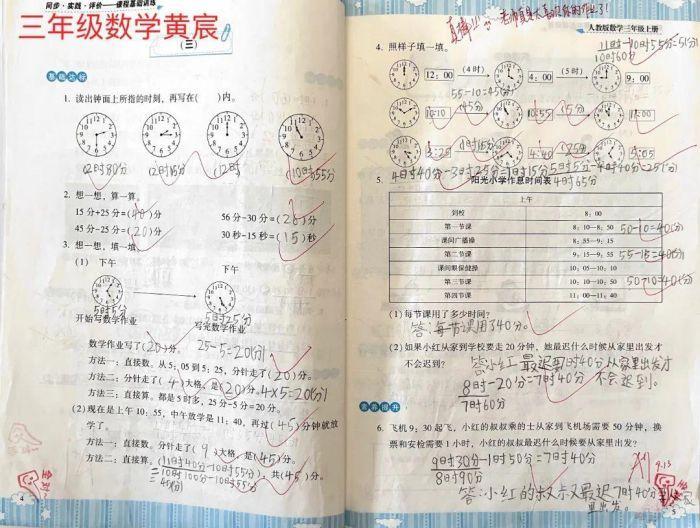 同步·实践·评价——课程基础训练
三年级数学黄宸
(三)
基础达标
1. 读出钟面上所指的时刻，再写在( )内。
(12时30分) (12时15分) (12时) (10时55分)
2. 想一想，算一算。
15分+25分=(40)分 56分-30分=(26)分
45分-25分=(20)分 30秒-15秒=(15)秒
3. 想一想，填一填。
(1) 下午 下午
5时5分 5时25分
开始写数学作业 写完数学作业
数学作业写了(20)分。 25-5=20(分)
方法一：直接数。从5：05到5：25，分针走了(20)分。
方法二：分针走了(4)大格，是(20)分。4×5=20(分)
方法三：直接算。都是5时多，25分-5分=20分。
(2)现在是上午10：55，中午放学是11：40，再过(45)分钟就放
学了。
方法一：直接数。分针走了(9)大格，是(45)分。
方法二：直接算。(11时40分-10时55分)，共(45)分。
=10时100分-10时55分
=45(分)
4
人教版数学三年级上册
4. 照样子填一填。
11时-10时55分=5(分)
10时60分
12：00 (4时) 4：00 (5时) 9：00
55-10=45(分)
10:10 (45分) 10:55 (5分) 11:00
3:25 (1时15分) 4:40 (25分) 5:05
4时40分-3时25分=1时15分 5时5分-4时40分=25(分)
4时65分
5. 阳光小学作息时间表
上午
到校 8：00
第一节课 8：10—8：50 50-10=40(分)
课间广播操 8：55—9：15
第二节课 9：15—9：55 55-15=40(分)
课间眼保健操 10：05—10：10
第三节课 10：10—10：50 50-10=40(分)
第四节课 11：00—11：40
(1)每节课用了多少时间？
答：每节课用了40分。
(2)如果小红从家到学校要走20分钟，她最迟什么时候从家里出发才
不会迟到？
答小红最迟要7时40分从家里出发才
不会迟到。
8时-20分=7时40分
7时60分
素养提升
6. 飞机9：30起飞，小红的叔叔乘的士从家到飞机场需要50分钟，换
票和安检需要1小时，小红的叔叔最迟什么时候要从家里出发？
9时30分-1时50分=7时40分
8时90分
9.13
答：小红的叔叔最迟7时40分从家
里出发。
5